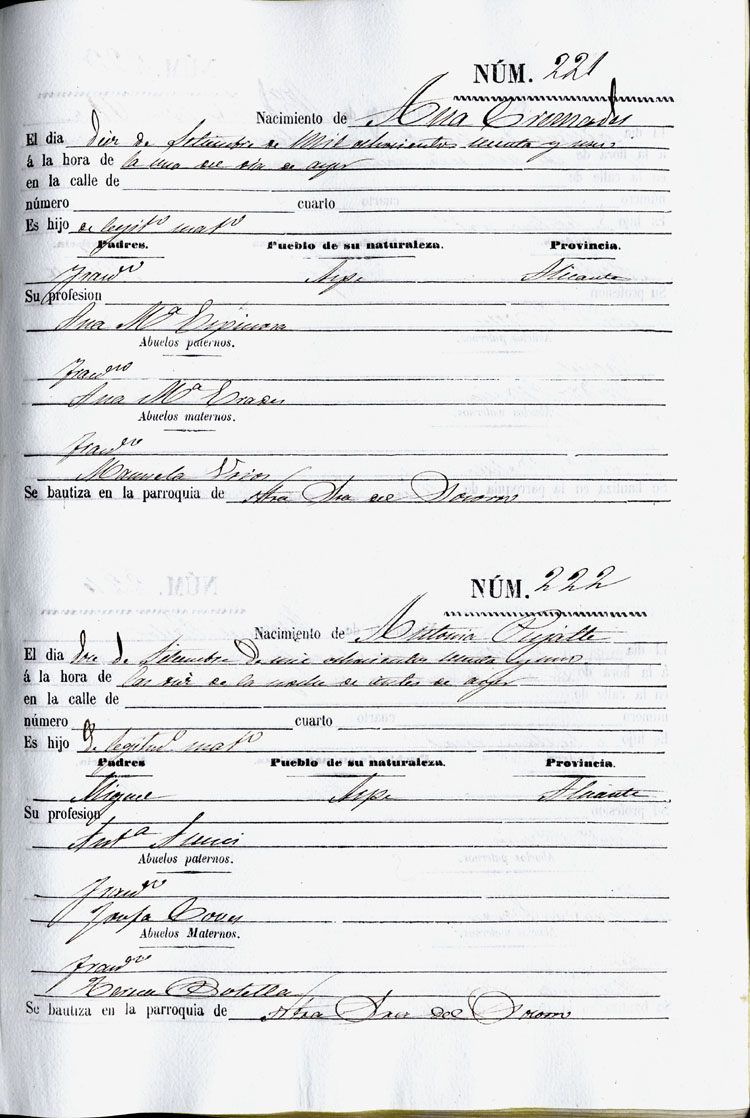 NÚM. 221
Nacimiento de Ana Cremades
El dia diez de Setiembre de Mil ochocientos setenta y uno
á la hora de la una del dia de ayer
en la calle de
número cuarto
Es hijo de legitº matº
Padres. Pueblo de su naturaleza. Provincia.
Francº Aspe Alicante
Su profesion
Ana Mª Espinosa
Abuelos paternos.
Francº
Ana Mª
Abuelos maternos.
Francº
Manuela
Se bautiza en la parroquia de Ntra Sra del Socorro
NÚM. 222
Nacimiento de Antonia Pujalte
El dia de Setiembre de mil ochocientos setenta y uno
á la hora de las diez de la noche de antes de ayer
en la calle de
número cuarto
Es hijo de legitmº matº
Padres Pueblo de su naturaleza. Provincia.
Miguel Aspe Alicante
Su profesion
Antª
Abuelos paternos.
Francº
Josefa
Abuelos Maternos.
Francº
Teresa Botella
Se bautiza en la parroquia de Ntra Sra del Socorro